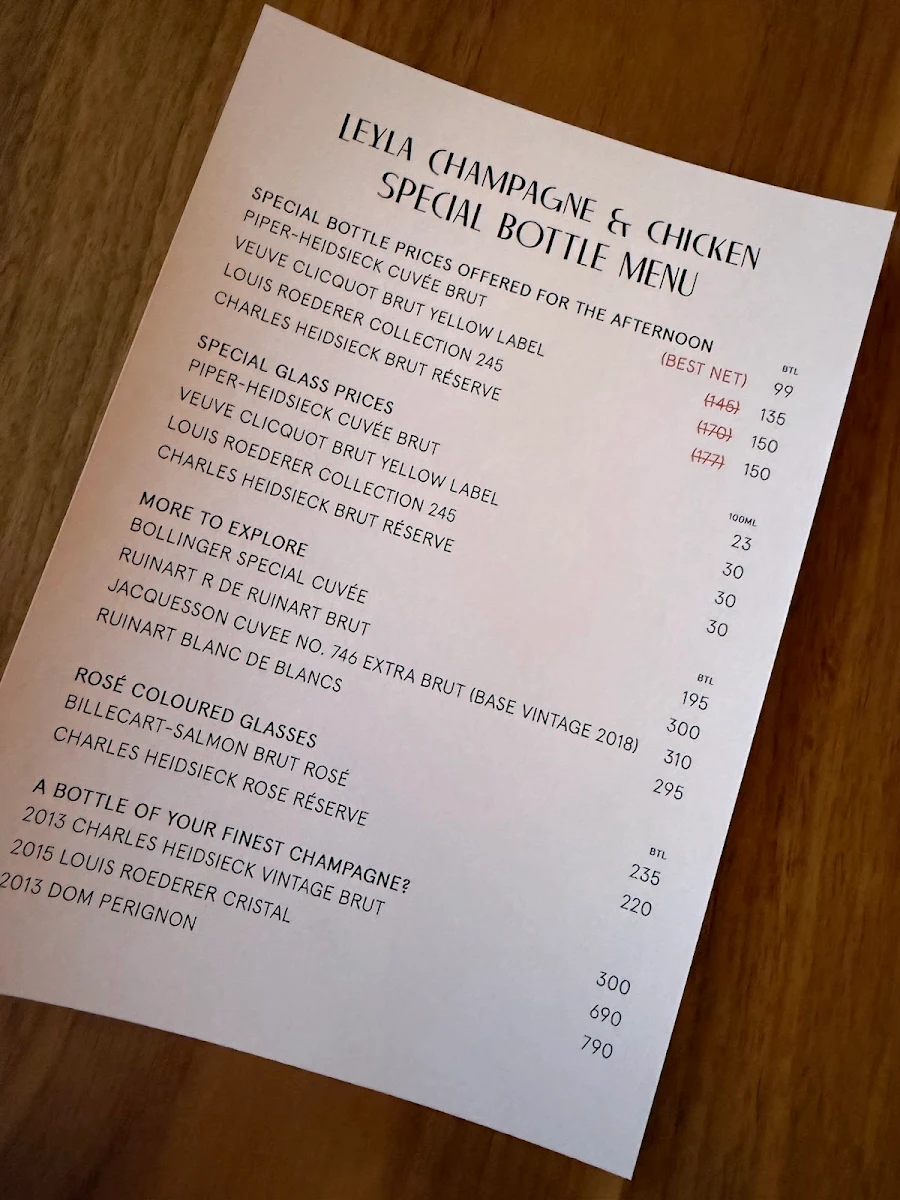 LEYLA CHAMPAGNE & CHICKEN
SPECIAL BOTTLE MENU
SPECIAL BOTTLE PRICES OFFERED FOR THE AFTERNOON BTL
PIPER-HEIDSIECK CUVÉE BRUT (BEST NET) 99
VEUVE CLICQUOT BRUT YELLOW LABEL (145) 135
LOUIS ROEDERER COLLECTION 245 (170) 150
CHARLES HEIDSIECK BRUT RÉSERVE (177) 150
SPECIAL GLASS PRICES 100ML
PIPER-HEIDSIECK CUVÉE BRUT 23
VEUVE CLICQUOT BRUT YELLOW LABEL 30
LOUIS ROEDERER COLLECTION 245 30
CHARLES HEIDSIECK BRUT RÉSERVE 30
MORE TO EXPLORE BTL
BOLLINGER SPECIAL CUVÉE 195
RUINART R DE RUINART BRUT 300
JACQUESSON CUVEE NO. 746 EXTRA BRUT (BASE VINTAGE 2018) 310
RUINART BLANC DE BLANCS 295
ROSÉ COLOURED GLASSES BTL
BILLECART-SALMON BRUT ROSÉ 235
CHARLES HEIDSIECK ROSE RÉSERVE 220
A BOTTLE OF YOUR FINEST CHAMPAGNE?
2013 CHARLES HEIDSIECK VINTAGE BRUT 300
2015 LOUIS ROEDERER CRISTAL 690
2013 DOM PERIGNON 790